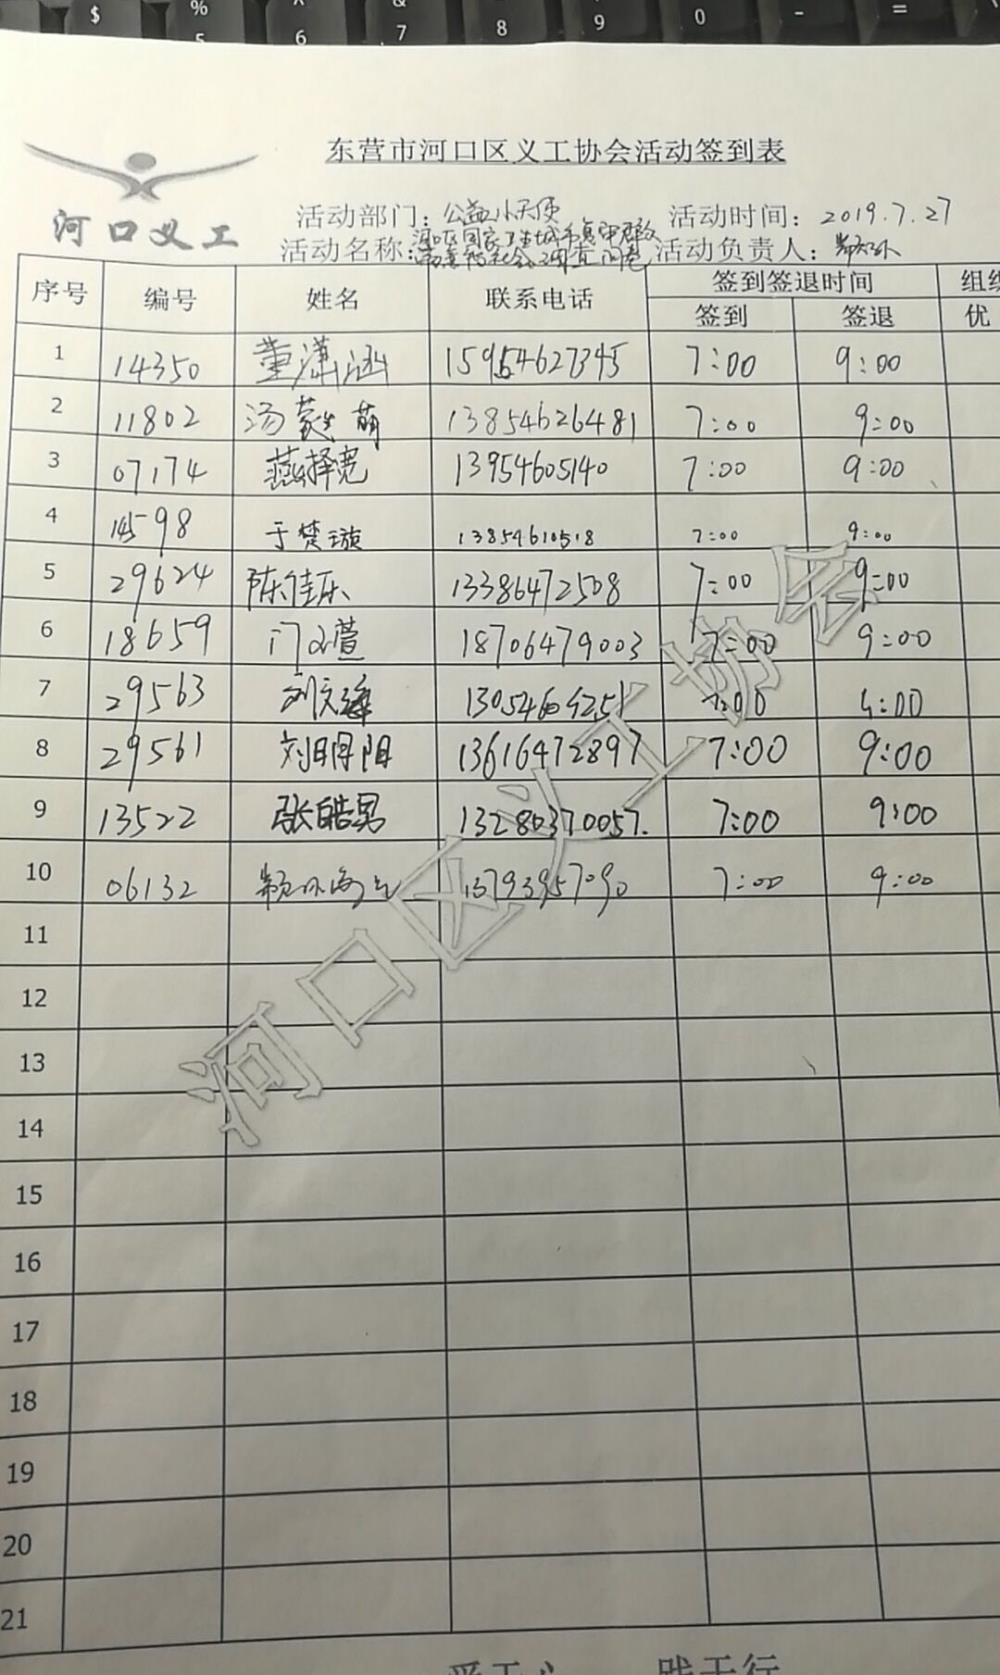 $ % ^ & * - =
5 6 7 8 9 0
东营市河口区义工协会活动签到表
河口义工
活动部门：公益小天使 活动时间：2019.7.27
活动名称：河口区国家卫生城市复审 调查问卷 活动负责人：
序号 编号 姓名 联系电话 签到签退时间 组织
签到 签退 优
1 14350 董潇涵 15954627345 7:00 9:00
2 11802 汤萌 13854626481 7:00 9:00
3 07174 燕择宽 13954605140 7:00 9:00
4 14598 于楚璇 13854610518 7:00 9:00
5 29624 陈佳乐 13386472508 7:00 9:00
6 18659 门萱 18706479003 7:00 9:00
7 29563 刘文 7:00 9:00
8 29561 刘明阳 13616472897 7:00 9:00
9 13522 张皓男 13280370057. 7:00 9:00
10 06132 13793957090 7:00 9:00
11
12
13
14
15
16
17
18
19
20
21
河口区义工协会